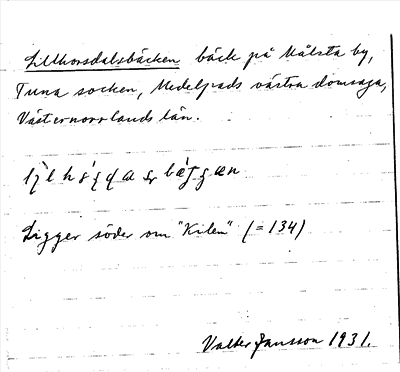 Lillhorsdalsbäcken bäck på Målsta by,
Tuna socken, Medelpads västra domsaga,
Västernorrlands län.
Ligger söder om "Kilen" (= 134)
Valter Jansson 1931.